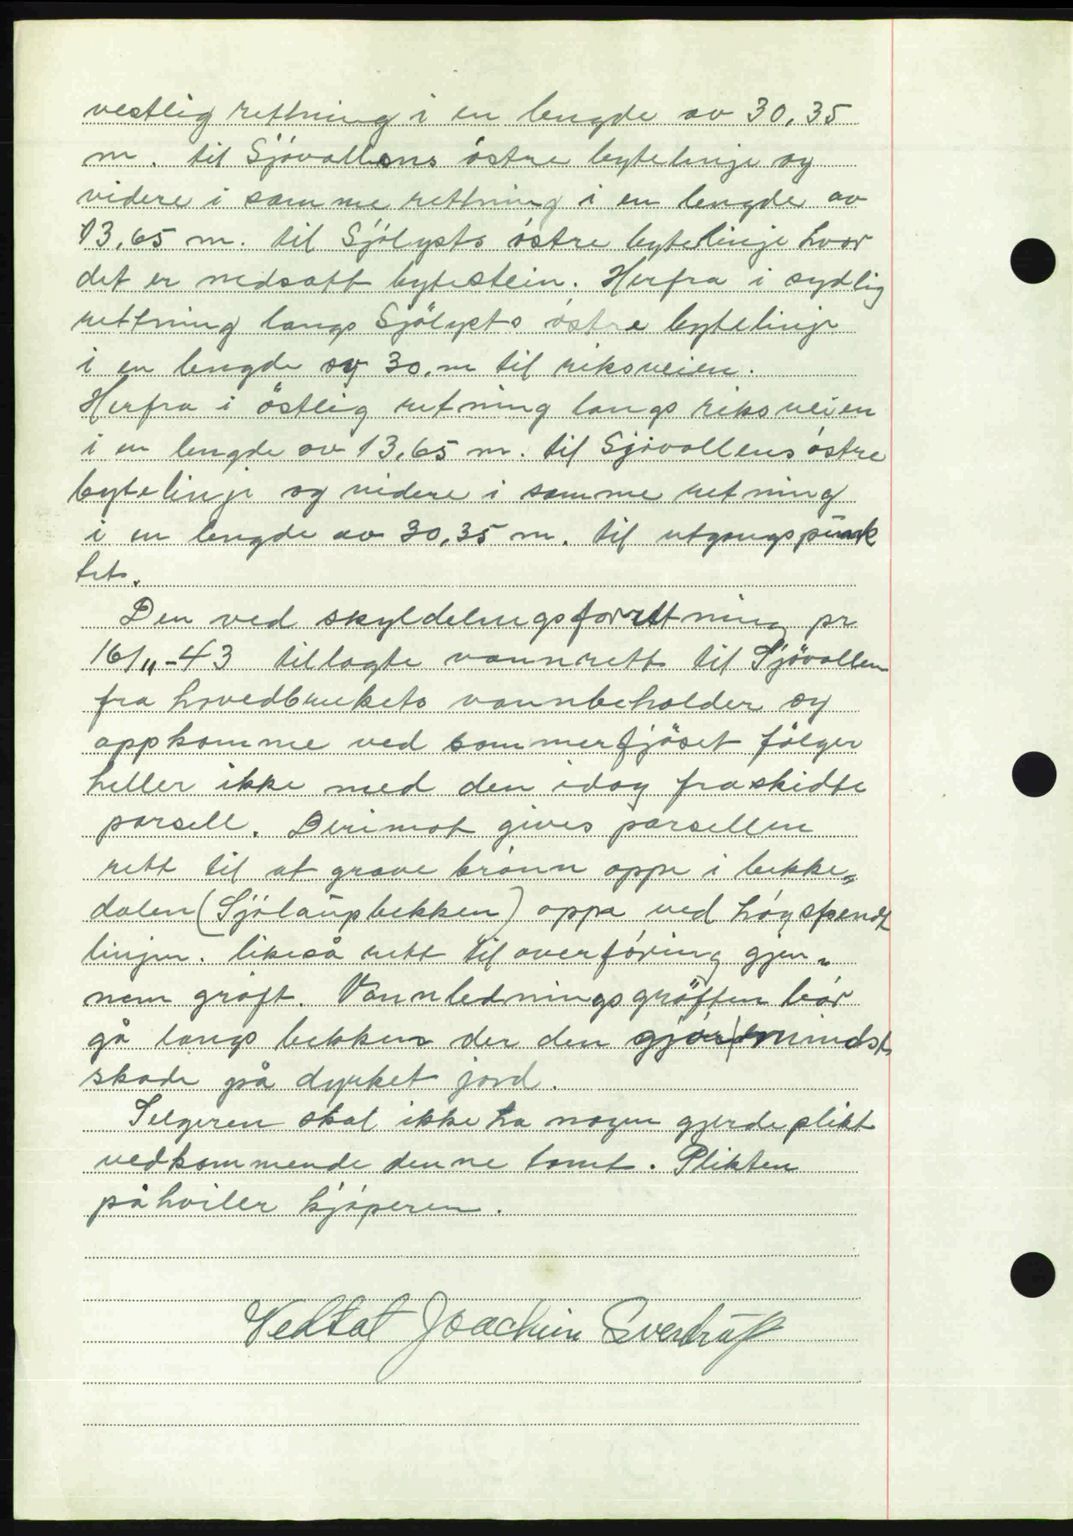 vestlig rettning i en lengde av 30,35
m. til Sjøvollens østre bytelinje og
videre i samme rettning i en lengde av
13,65 m. til Sjølysts østre bytelinje hvor
det er nedsatt bytestein. Herfra i sydlig
rettning langs Sjølysts østre bytelinje
i en lengde av 30.m til riksveien.
Herfra i østlig retning langs riksveien
i en lengde av 13,65 m. til Sjøvollens østre
bytelinje og videre i samme retning
i en lengde av 30,35 m. til utgangspunk
tet.
Den ved skyldelingsforrettning pr
16/11-43 tillagte vannrett til Sjøvollen
fra hovedbrukets vannbeholder og
oppkomme ved sommerfjøset følger
heller ikke med den idag fraskidte
parsell. Derimot gives parsellen
rett til at grave brønn oppe i bekke-
dalen (Sjølaupbekken) oppe ved høgspendt
linjen. likeså rett til overføring gjen-
nem grøft. Vannledningsgrøften bør
gå langs bekken der den gjør mindst
skade på dyrket jord.
Selgeren skal ikke ha nogen gjerdeplikt
vedkommende denne tomt. Plikten
påhviler kjøperen.
Vedtat Joachim Sverdrup